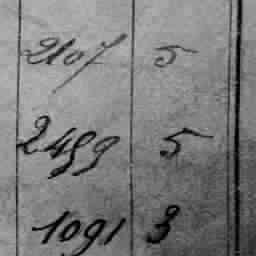 2107 5
2489 5
1091 3